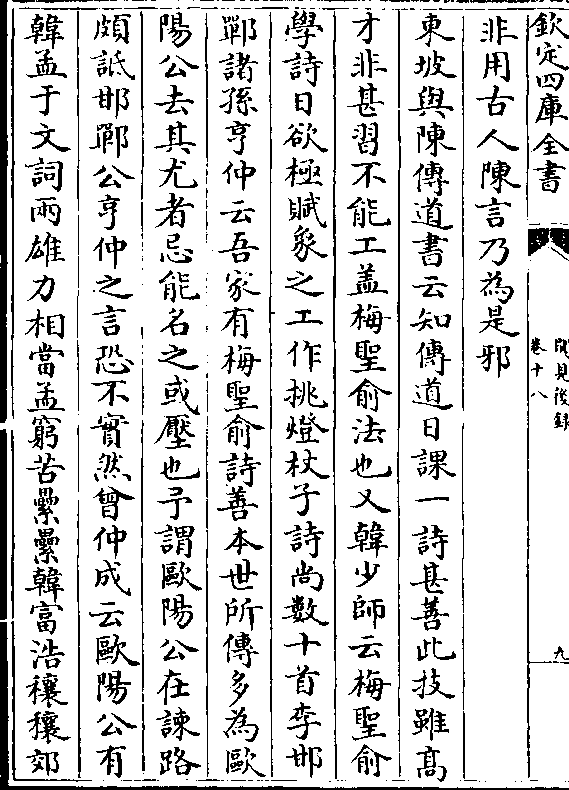 欽定四庫全書
聞見後錄
卷十八
九
非用古人陳言乃為是邪
東坡與陳傳道書云知傳道日課一詩甚善此技雖髙
才非甚習不能工葢梅聖俞法也又韓少師云梅聖俞
學詩日欲極賦象之工作挑燈杖子詩尚數十首李邯
鄲諸孫亨仲云吾家有梅聖俞詩善本世所傳多為歐
陽公去其尤者忌能名之或壓也予謂歐陽公在諫路
頗詆邯鄲公亨仲之言恐不實然曾仲成云歐陽公有
韓孟于文詞兩雄力相當孟窮苦纍纍韓富浩穰穰郊